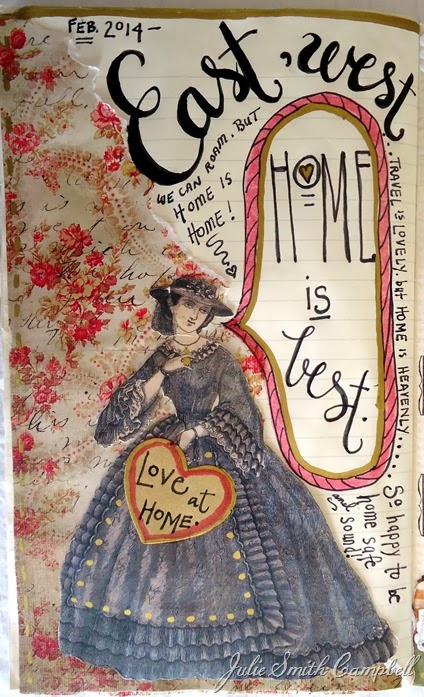 FEB. 2014-
East, west
WE CAN ROAM. BUT
HOME IS
HOME!
HOME
is
best.
..TRAVEL IS LOVELY. but HOME IS HEAVENLY....
So happy to be
home safe
and sound!
Love at
HOME.
Julie Smith Campbell